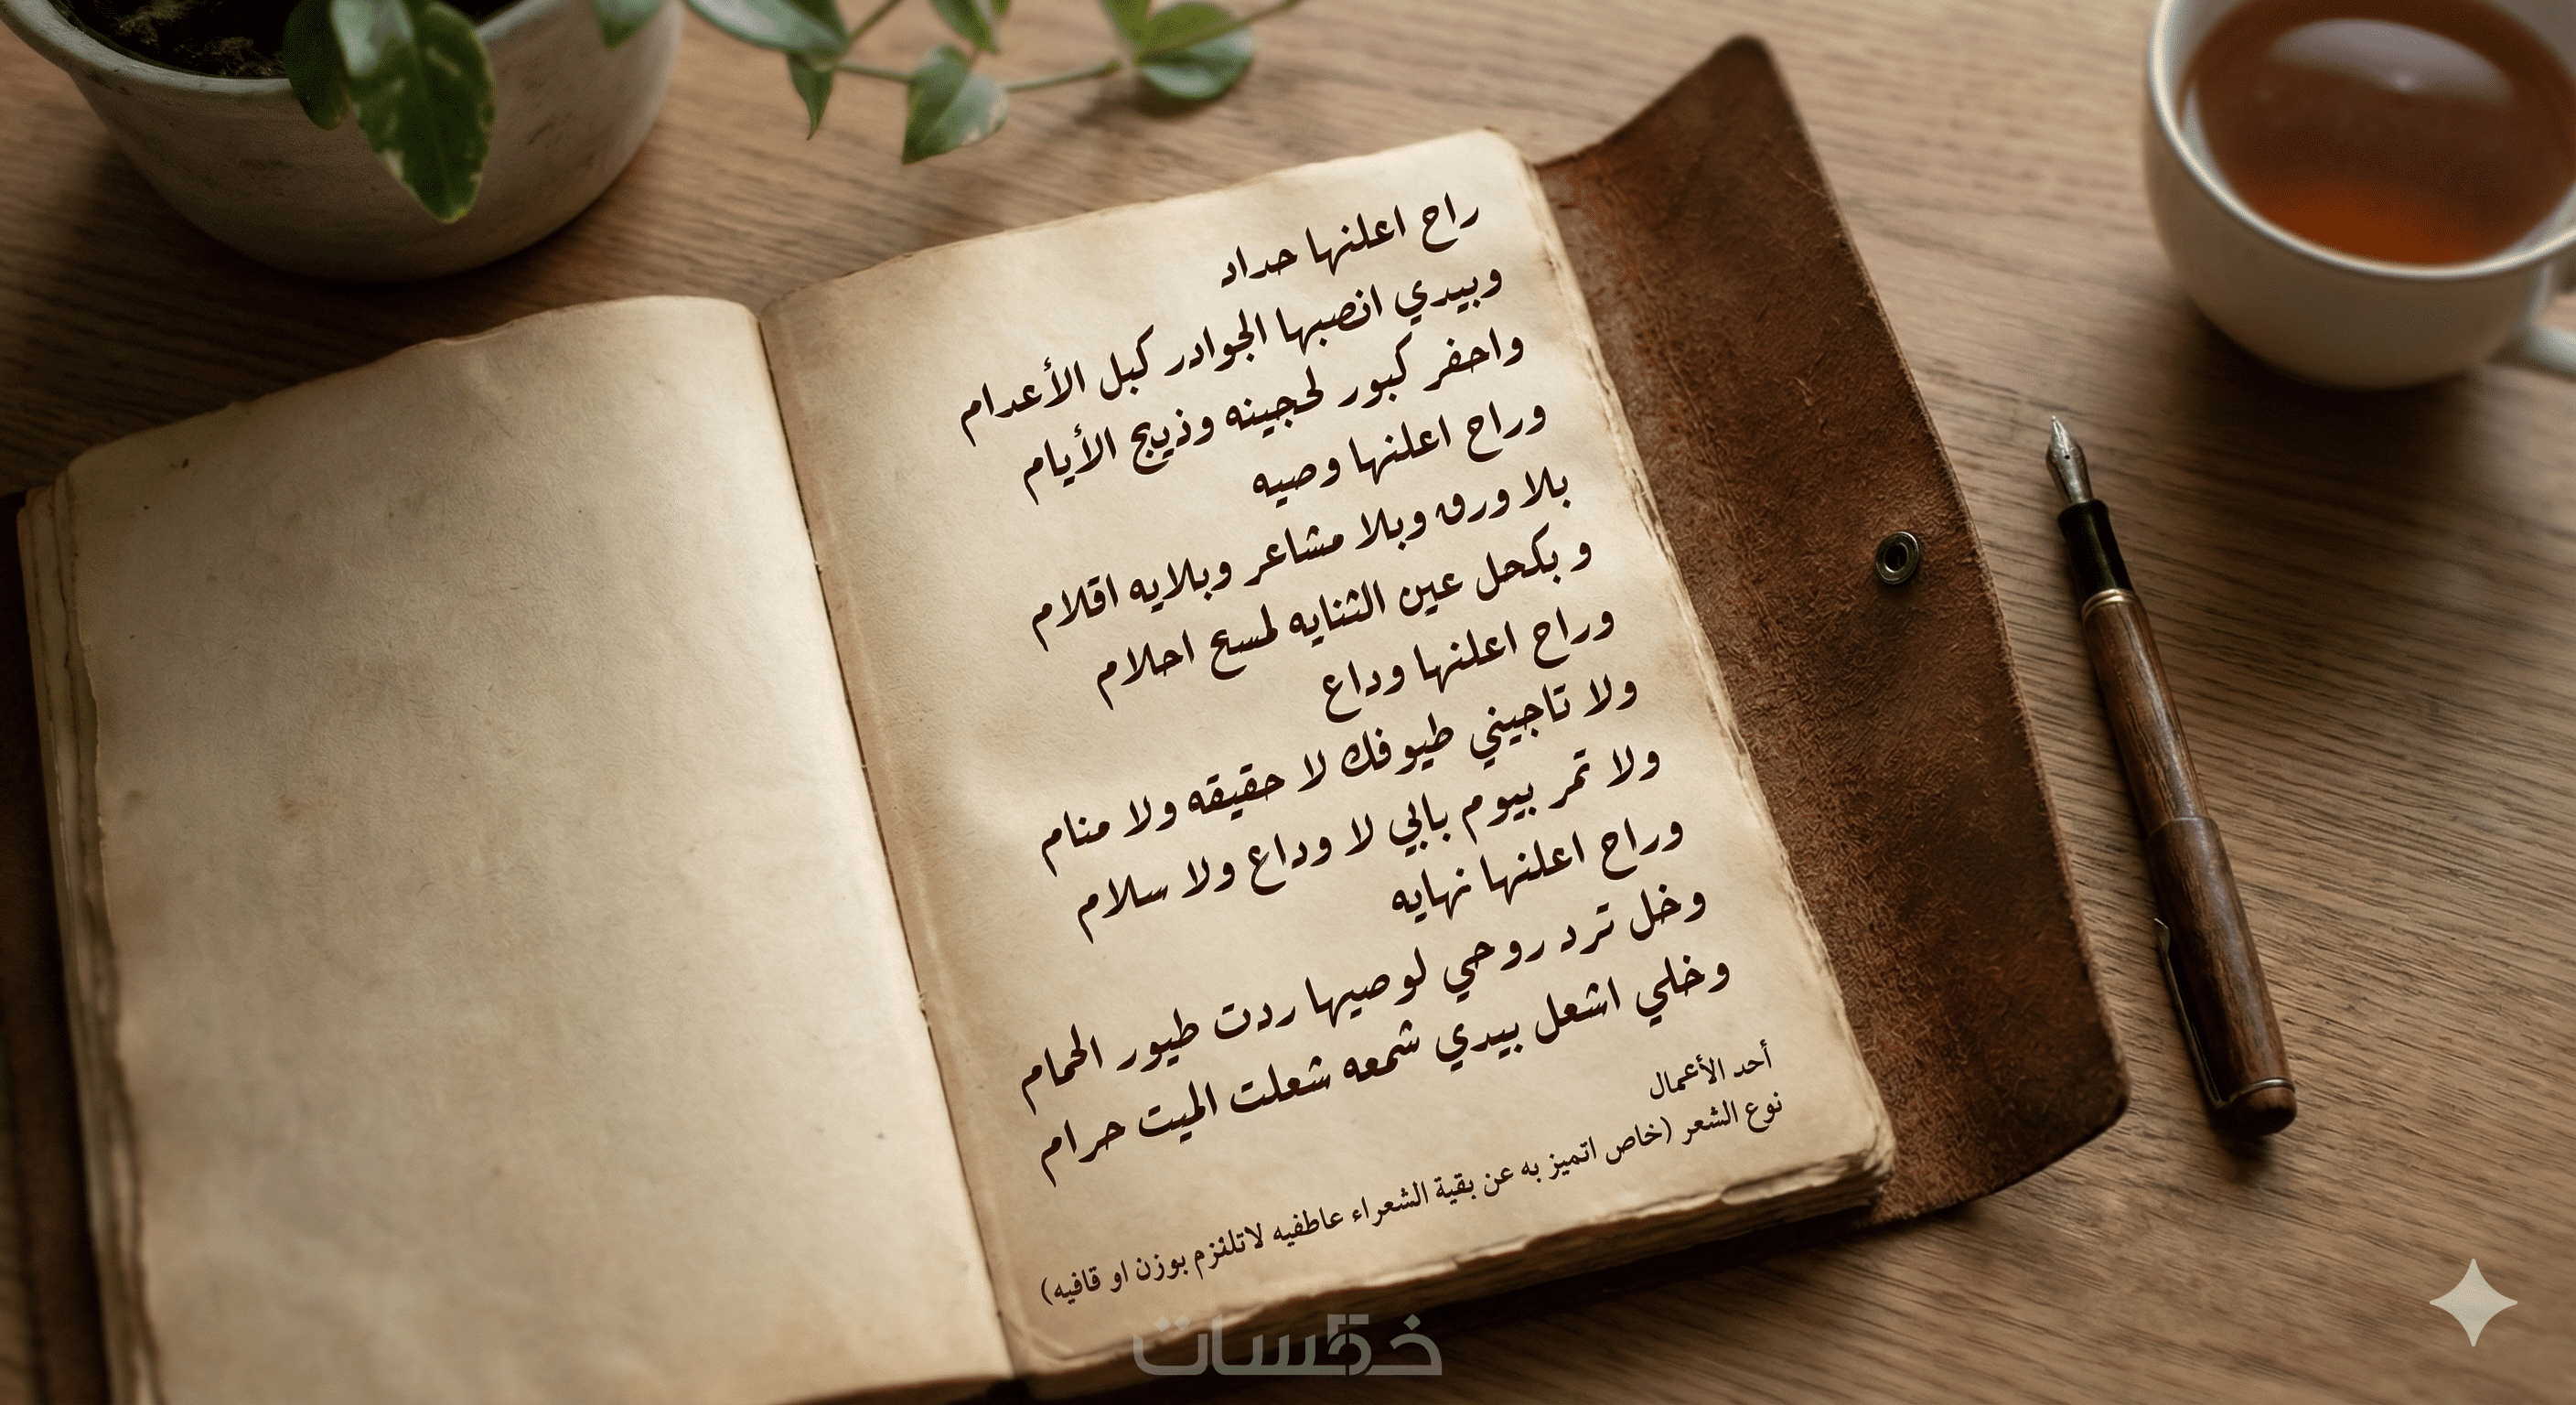 راح اعلنها حداد
وبيدي انصبها الجوادر كبل الأعدام
واحفر كبور لحجينه وذيج الأيام
وراح اعلنها وصيه
بلا ورق وبلا مشاعر وبلايه اقلام
و بكحل عين الثنايه لمسح احلام
وراح اعلنها وداع
ولا تاجيني طيوفك لا حقيقه ولا منام
ولا تمر بيوم بالي لا وداع ولا سلام
وراح اعلنها نهايه
وخل ترد روحي لوصيها ردت طيور الحمام
وخلي اشعل بيدي شمعه شعلت الميت حرام
أحد الأعمال
نوع الشعر (خاص اتميز به عن بقية الشعراء عاطفيه لاتلتزم بوزن او قافيه)
خمسات